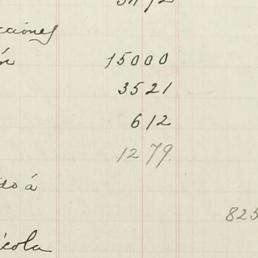 cciones
15000
3521
612
1279.
do á
825
ícola